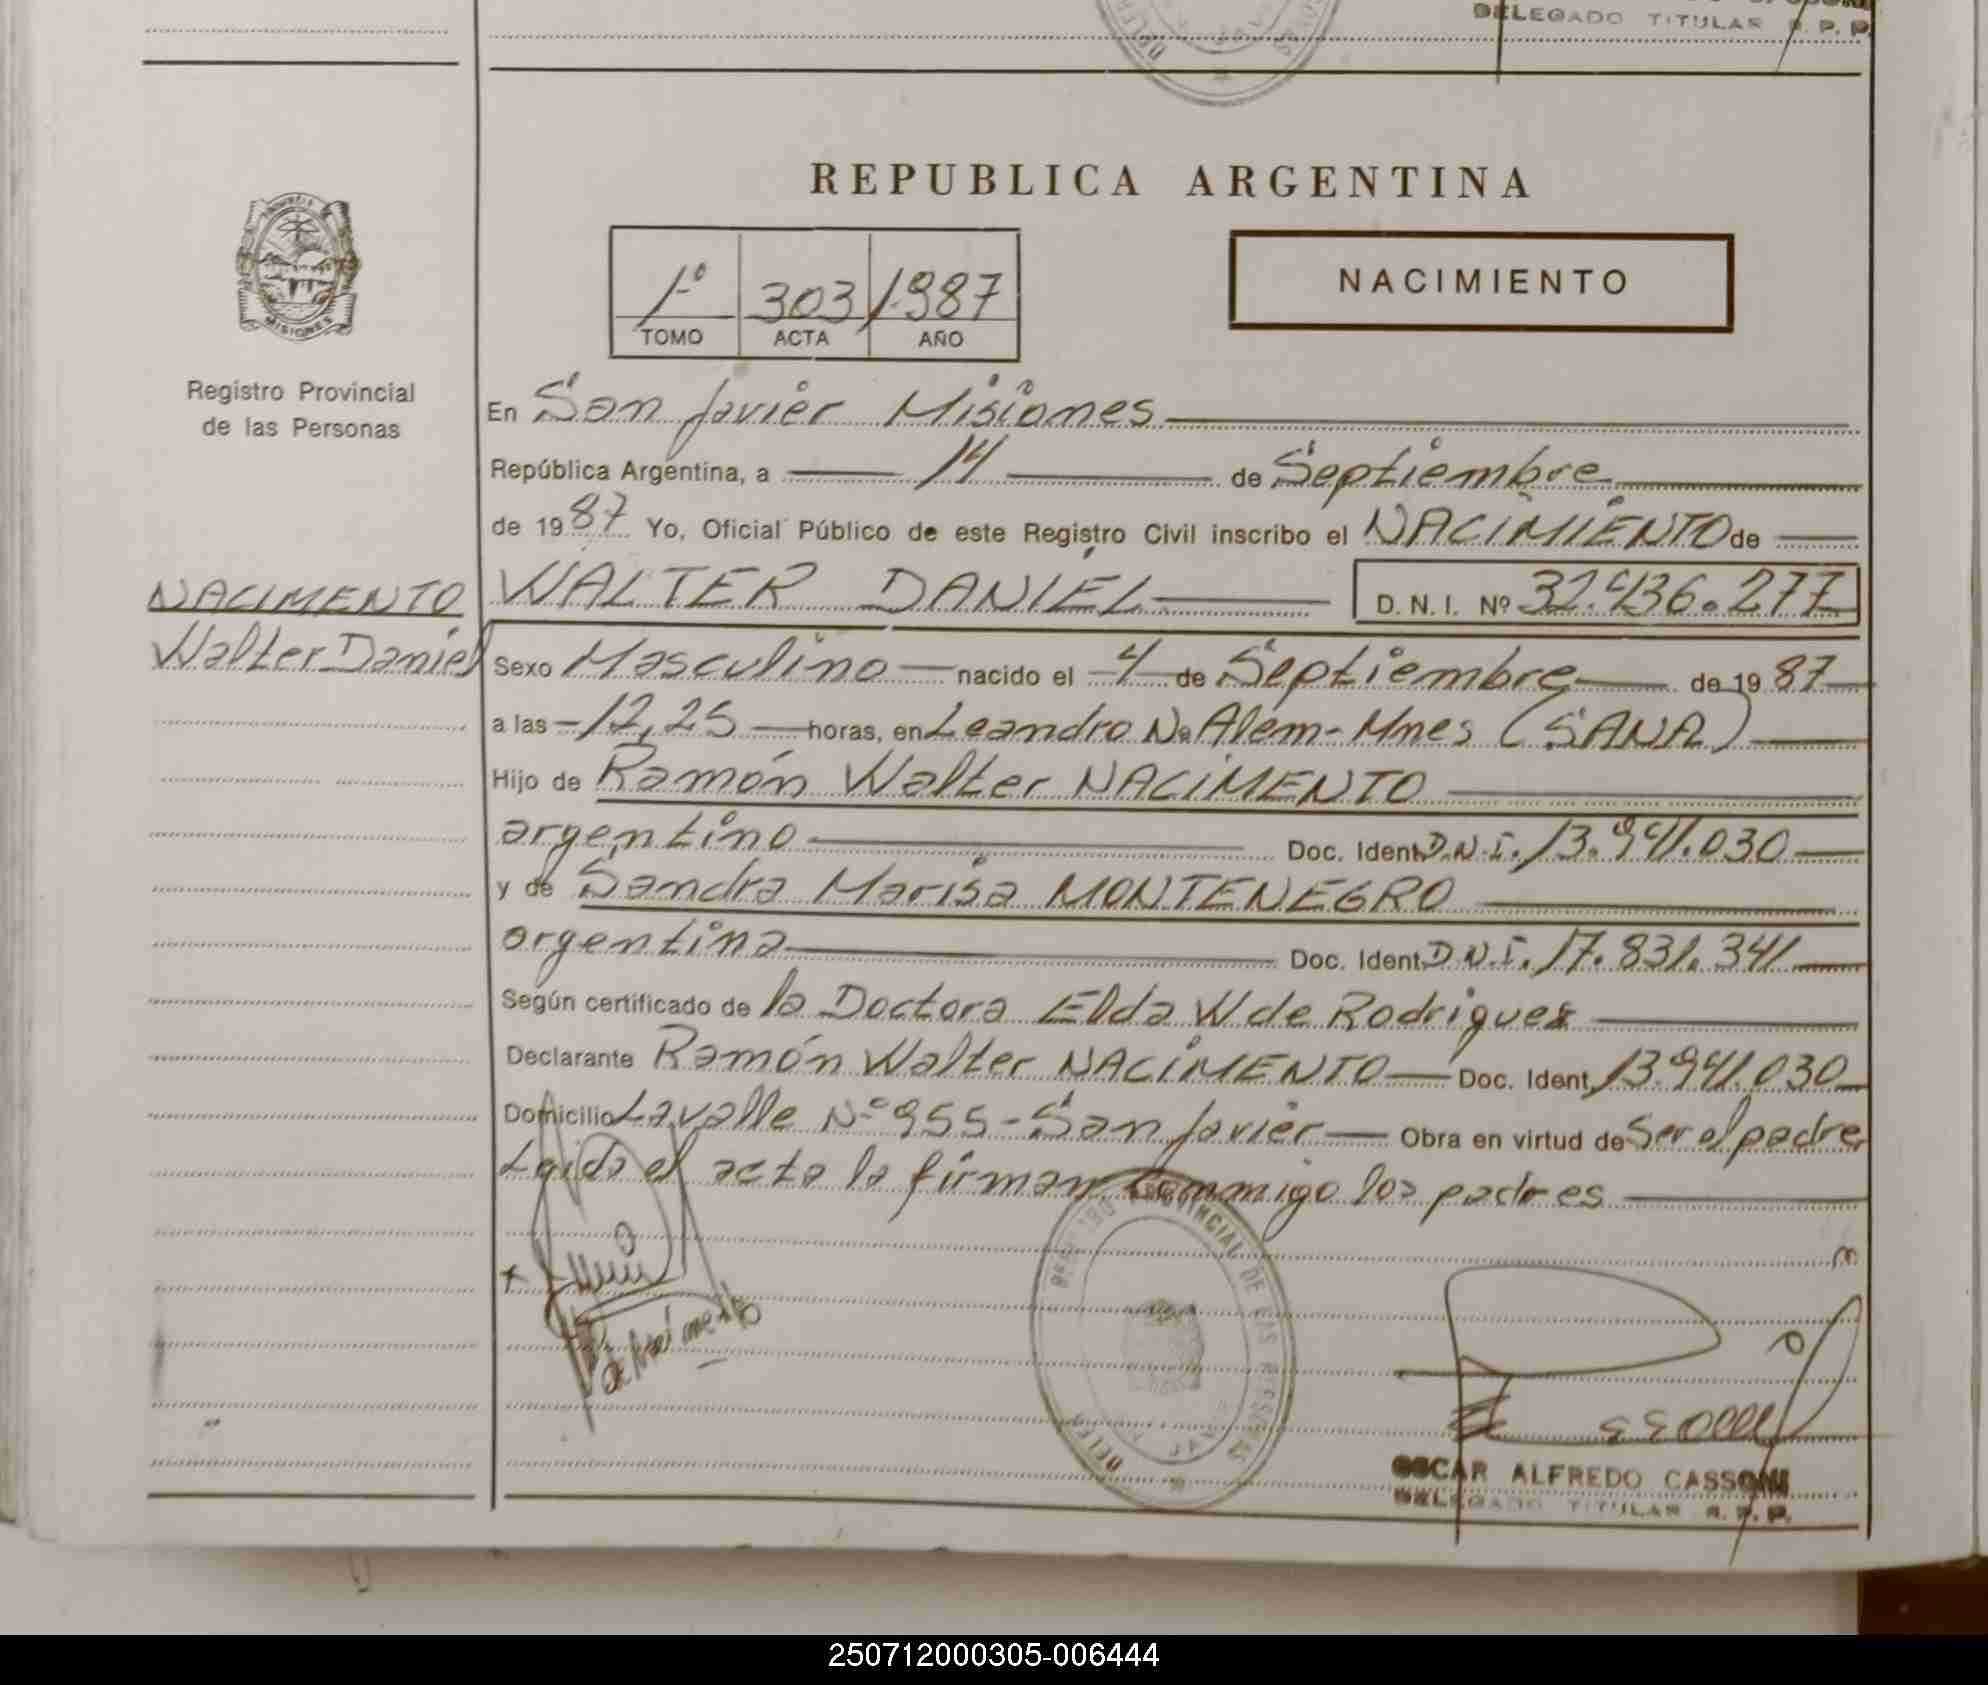 DELEGADO TITULAR R. P. P.
REPUBLICA ARGENTINA
1º 303 1987
TOMO ACTA AÑO
NACIMIENTO
MISIONES
Registro Provincial
de las Personas
NACIMENTO
Walter Daniel
En San Javier Misiones
República Argentina, a 14 de Septiembre
de 1987 Yo, Oficial Público de este Registro Civil inscribo el NACIMIENTO de
WALTER DANIEL D. N. I. Nº 32.436.277
Sexo Masculino nacido el 4 de Septiembre de 1987
a las 12,25 horas, en Leandro N. Alem - Mnes (SANA)
Hijo de Ramón Walter NACIMENTO
argentino Doc. Ident. D.N.I. 13.941.030
y de Sandra Marisa MONTENEGRO
argentina Doc. Ident. D.N.I. 17.831.341
Según certificado de la Doctora Elda W de Rodriguez
Declarante Ramón Walter NACIMENTO Doc. Ident. 13.941.030
Domicilio Lavalle Nº 955 - San Javier Obra en virtud de Ser el padre
Leida el acta la firman conmigo los padres
REGISTRO PROVINCIAL DE LAS PERSONAS
OSCAR ALFREDO CASSONI
DELEGADO TITULAR R. P. P.
250712000305-006444